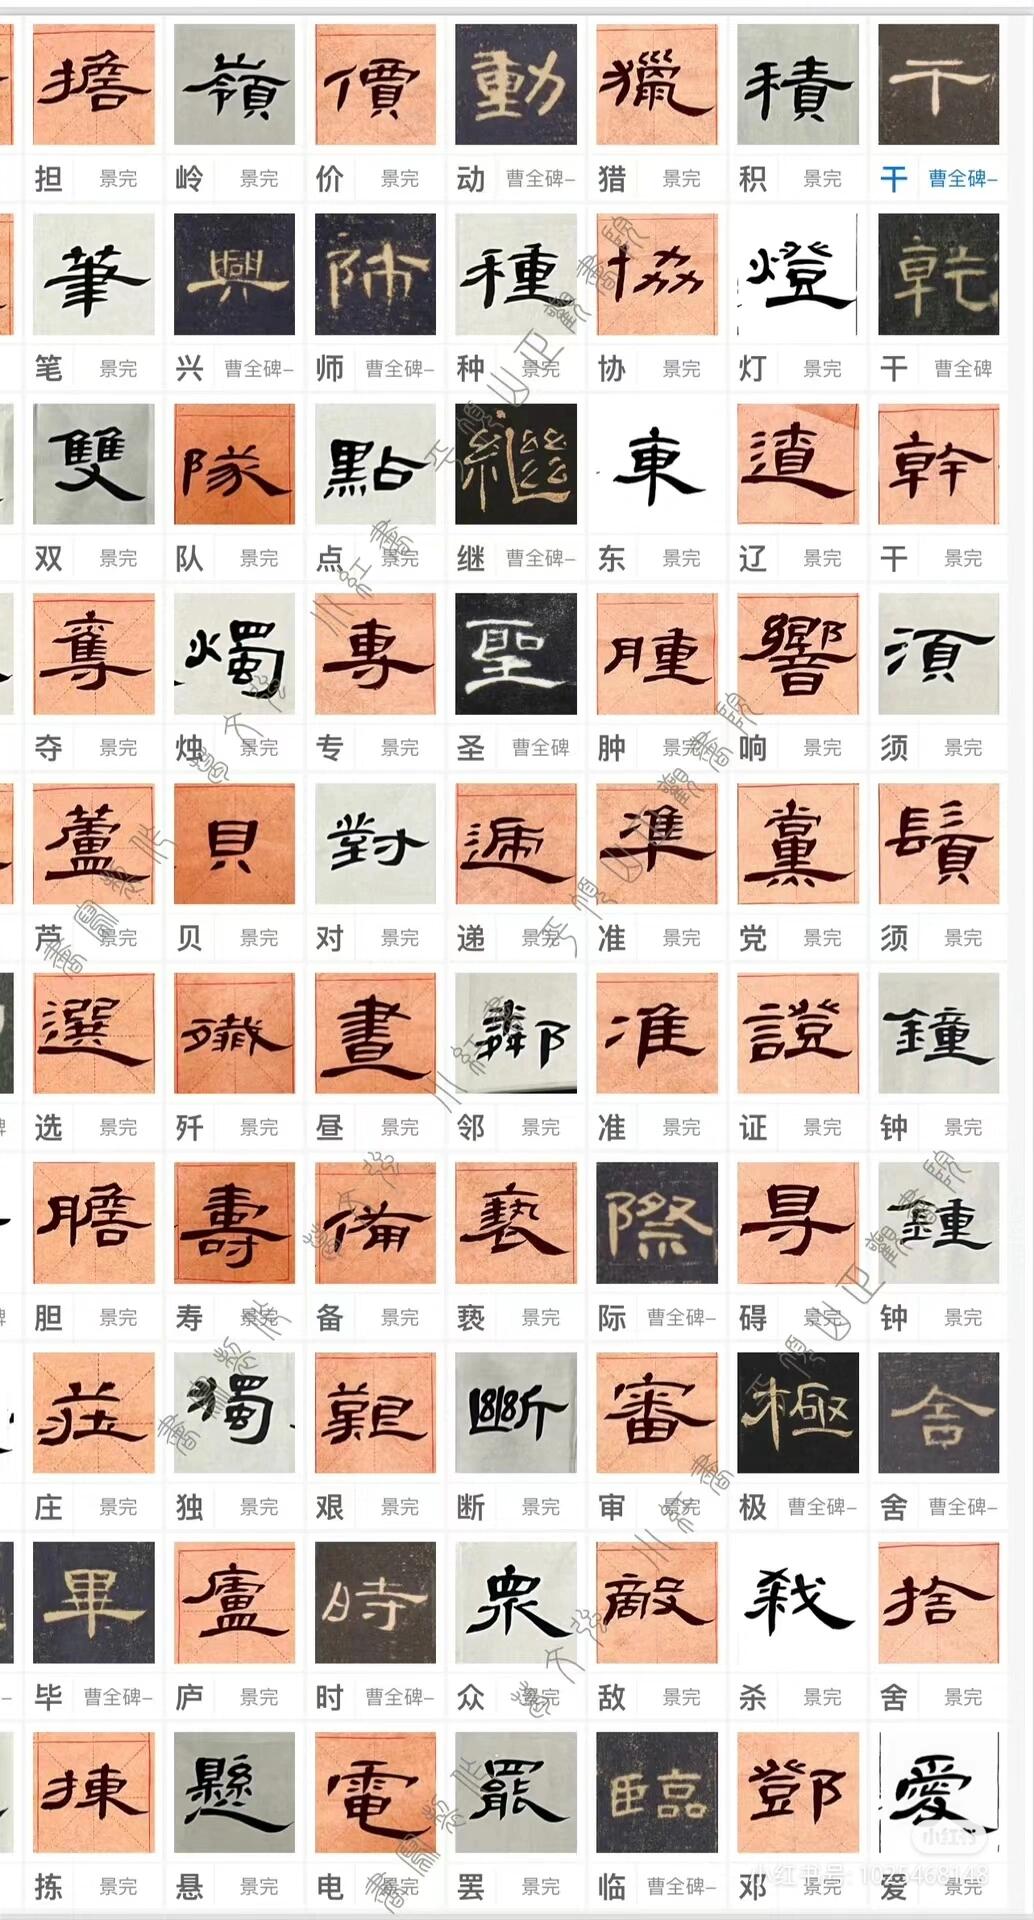 擔 嶺 價 動 獵 積 干
担 景完 岭 景完 价 景完 动 曹全碑– 猎 景完 积 景完 干 曹全碑–
筆 興 師 種 協 燈 乾
笔 景完 兴 曹全碑– 师 曹全碑– 种 景完 协 景完 灯 景完 干 曹全碑
雙 隊 點 繼 東 遼 幹
双 景完 队 景完 点 景完 继 曹全碑– 东 景完 辽 景完 干 景完
奪 燭 專 聖 腫 響 須
夺 景完 烛 景完 专 景完 圣 曹全碑 肿 景完 响 景完 须 景完
蘆 貝 對 遞 準 黨 鬚
芦 景完 贝 景完 对 景完 递 景完 准 景完 党 景完 须 景完
選 殲 晝 鄰 准 證 鐘
选 景完 歼 景完 昼 景完 邻 景完 准 景完 证 景完 钟 景完
膽 壽 備 褻 際 㝵 鍾
胆 景完 寿 景完 备 景完 亵 景完 际 曹全碑– 碍 景完 钟 景完
莊 獨 艱 斷 審 極 舍
庄 景完 独 景完 艰 景完 断 景完 审 景完 极 曹全碑– 舍 曹全碑–
畢 廬 時 眾 敵 殺 捨
毕 曹全碑– 庐 景完 时 曹全碑– 众 景完 敌 景完 杀 景完 舍 景完
揀 懸 電 罷 臨 鄧 愛
拣 景完 悬 景完 电 景完 罢 景完 临 曹全碑– 邓 景完 爱 景完
小红书
小红书号: 1025468148